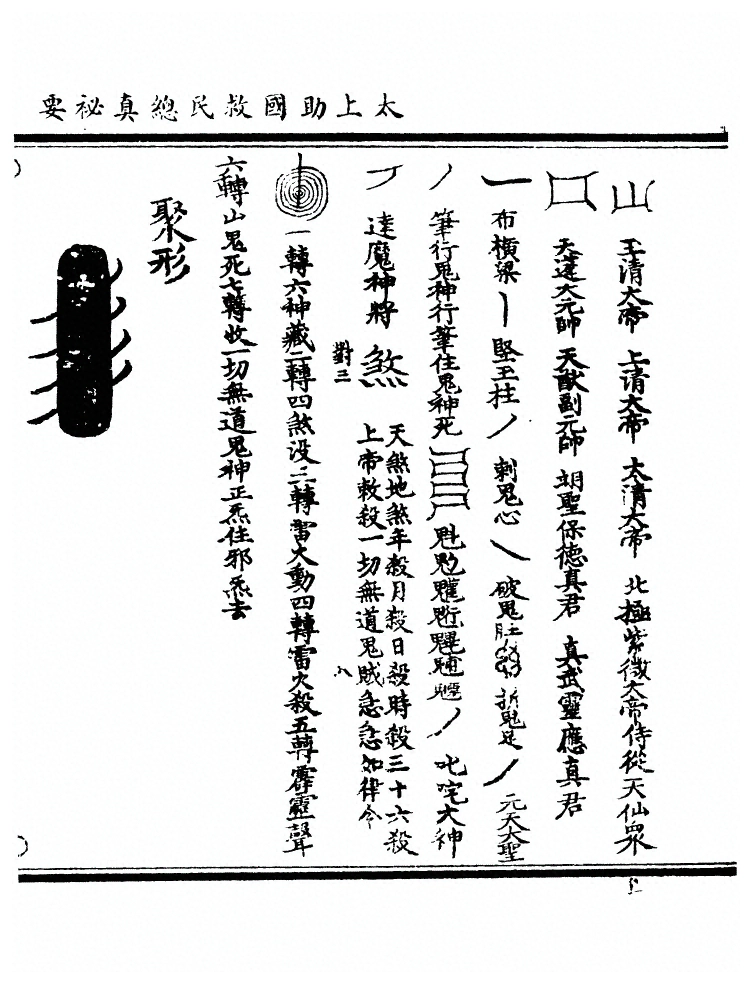 太上助國救民總真祕要
山 玉清大帝 上清大帝 太清大帝 北極紫微大帝侍從天仙眾
天蓬大元帥 天猷副元帥 翊聖保德真君 真武靈應真君
一 布橫梁 丨 堅玉柱 丿 刺鬼心 破鬼肚 折鬼足 元天大聖
丿 筆行鬼神行筆住鬼神死 魁 叱咤大神
達魔神將 煞 對三
天煞地煞年殺月殺日殺時殺三十六殺
上帝敕殺一切無道鬼賊急急如律令
一轉六神藏二轉四煞没三轉雷火動四轉雷火殺五轉霹靂聲
六轉山鬼死七轉收一切無道鬼神正炁住邪炁去
聚形